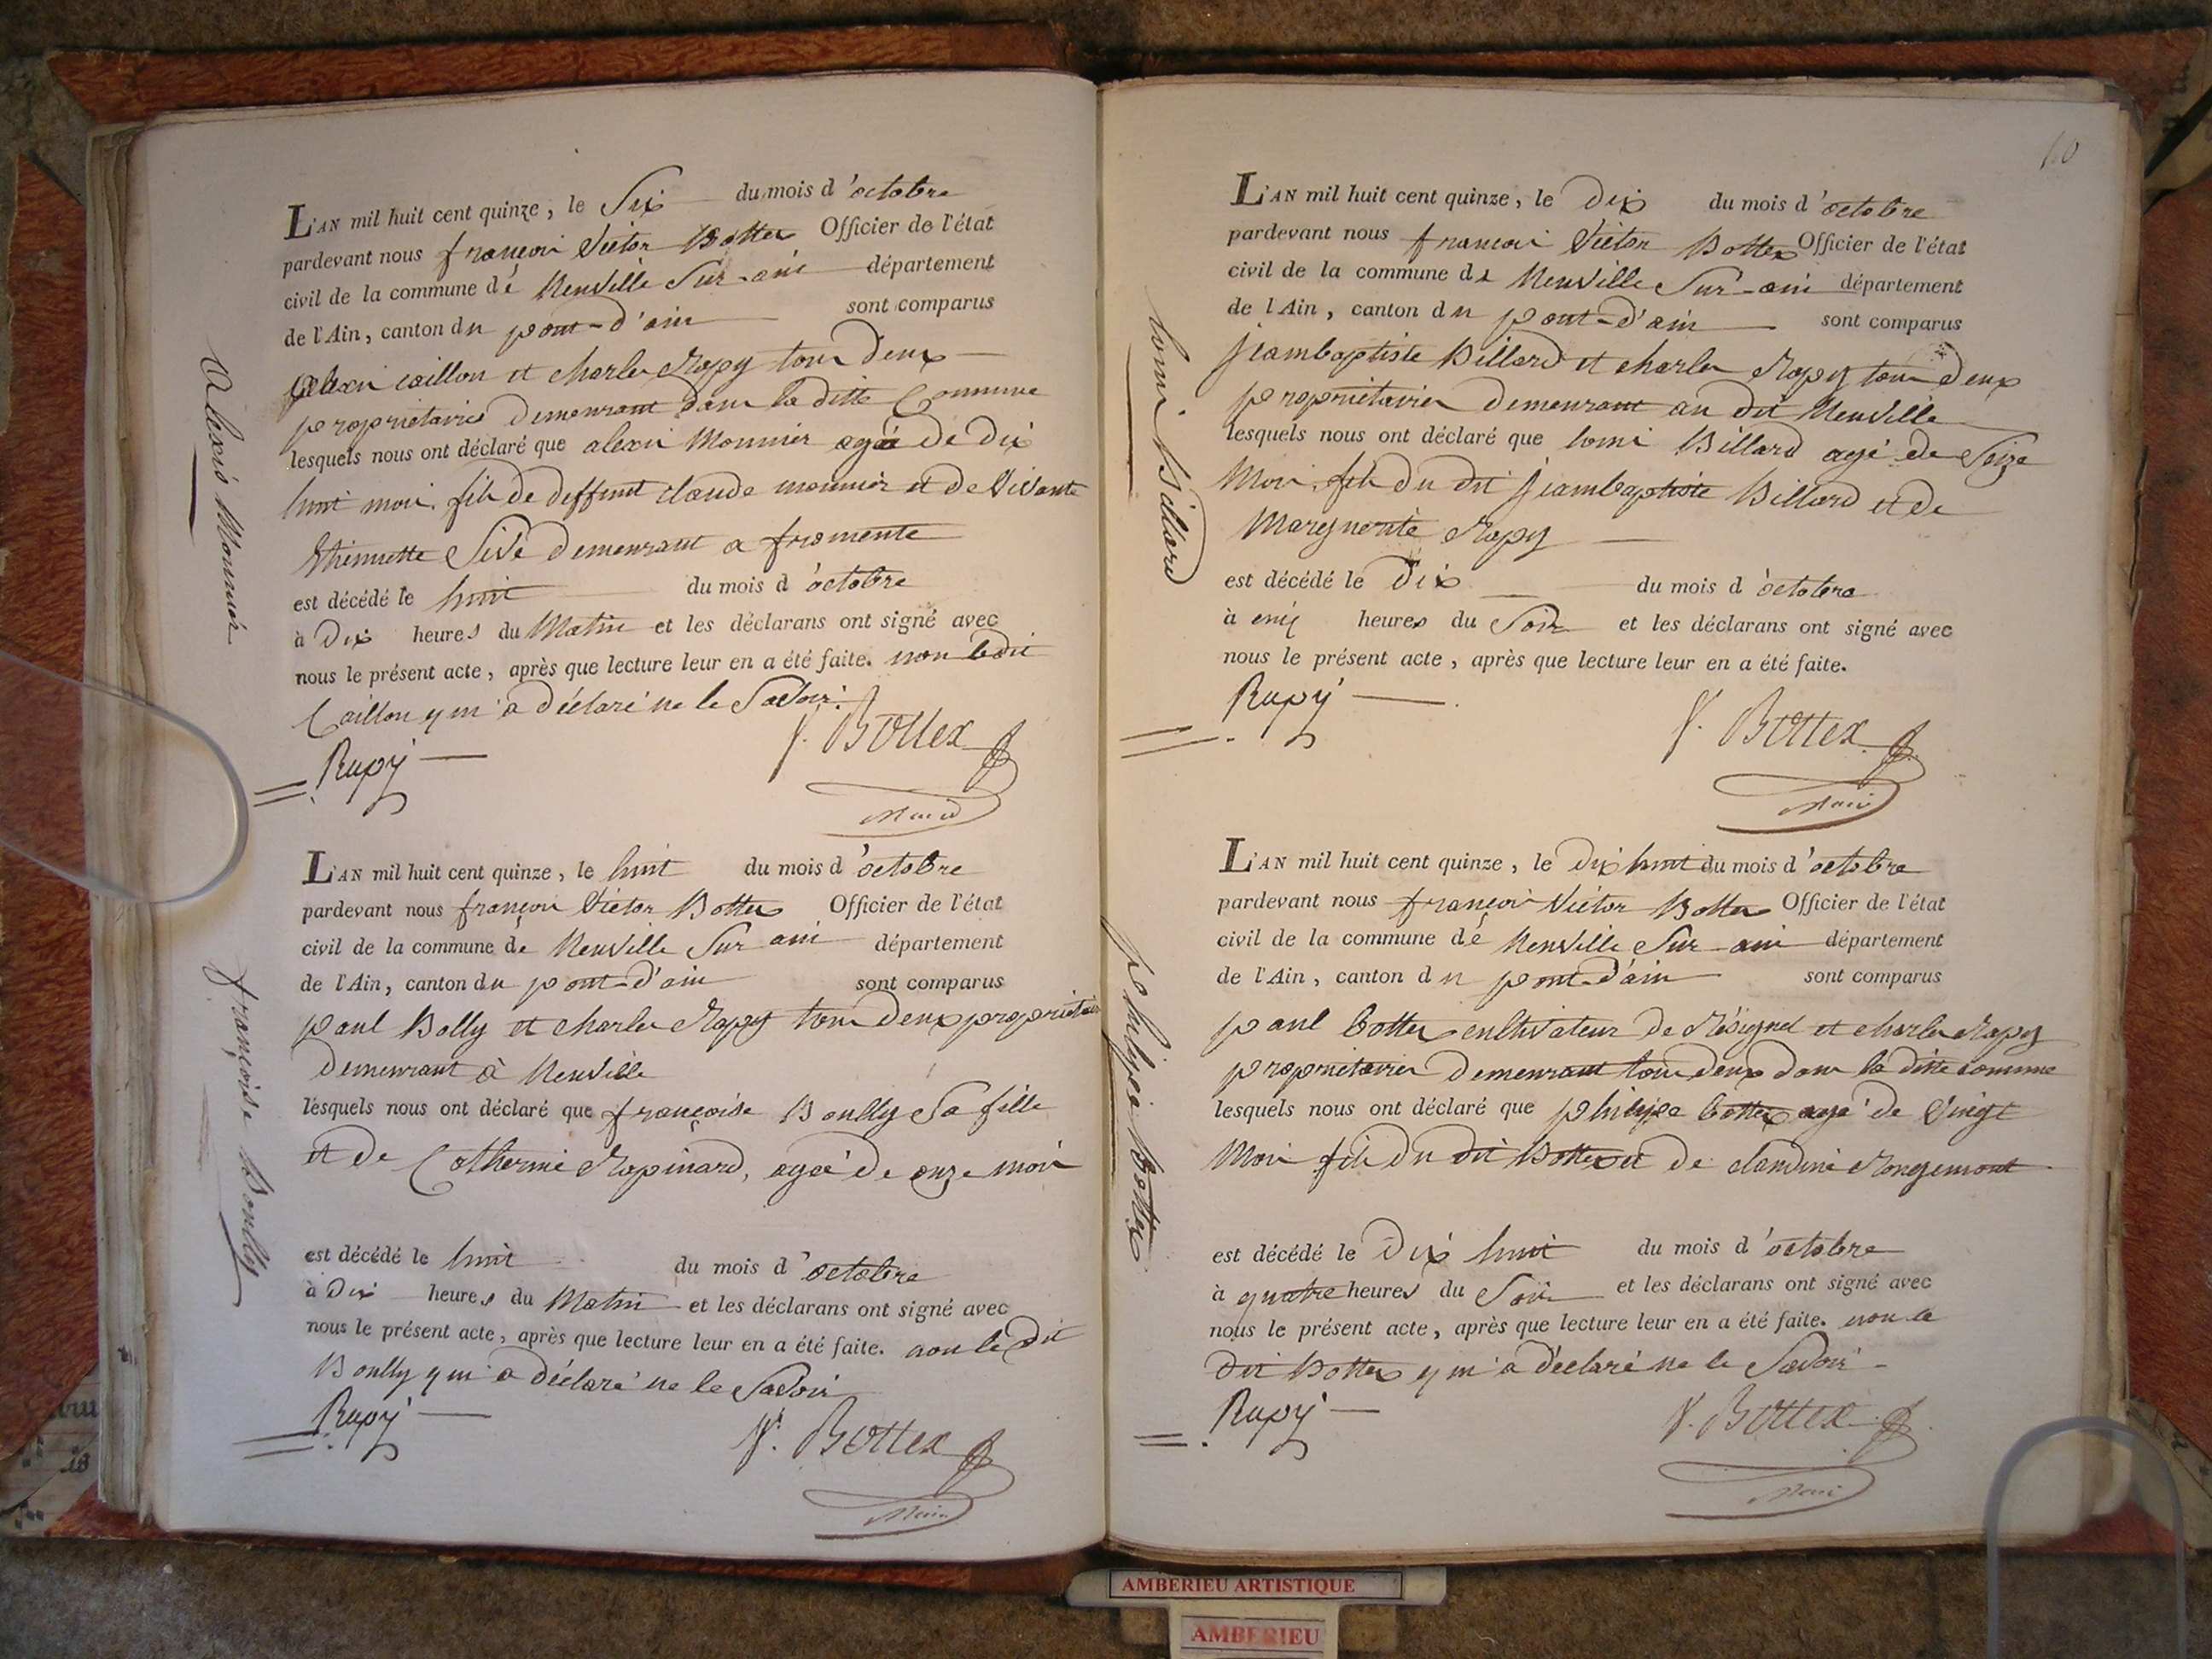 L'AN mil huit cent quinze, le Six du mois d'octobre
pardevant nous françois Victor Bottex Officier de l'état
civil de la commune de Neuville Sur-ain département
de l'Ain, canton du pont-d'ain sont comparus
alexi caillon et charles Rapy tous deux
proprietaires demeurant dans la ditte Commune
lesquels nous ont déclaré que alexi Monnier agé de dix
huit mois, fils de deffunt claude monnier et de Vivante
Sive demeurant a fromente
est décédé le huit du mois d'octobre
à Dix heures du Matin et les déclarans ont signé avec
nous le présent acte, après que lecture leur en a été faite. non le dit
Caillon qui a déclaré ne le Savoir.
Rapy V. Bottex
Maire
Alexis Monnier
L'AN mil huit cent quinze, le huit du mois d'octobre
pardevant nous françois Victor Bottex Officier de l'état
civil de la commune de Neuville Sur ain département
de l'Ain, canton du pont-d'ain sont comparus
paul Bolly et charles Rapy tous deux proprietaires
demeurant à Neuville
lesquels nous ont déclaré que françoise Boully Sa fille
et de Catherine Rapinard, agée de onze mois
est décédé le huit du mois d'octobre
à Dix heures du Matin et les déclarans ont signé avec
nous le présent acte, après que lecture leur en a été faite. non le dit
Boully qui a déclaré ne le Savoir
Rapy V. Bottex
Maire
françoise Boully
10
L'AN mil huit cent quinze, le Dix du mois d'octobre
pardevant nous françois Victor Bottex Officier de l'état
civil de la commune de Neuville Sur-ain département
de l'Ain, canton du pont-d'ain sont comparus
jeambaptiste Billard et charles Rapy tous deux
proprietaires demeurant au dit Neuville
lesquels nous ont déclaré que Billard agé de Seize
Mois, fils du dit jeambaptiste Billard et de
Marguerite Rapy
est décédé le Dix du mois d'octobre
à cinq heures du Soir et les déclarans ont signé avec
nous le présent acte, après que lecture leur en a été faite.
Rapy V. Bottex
Maire
Billard
L'AN mil huit cent quinze, le Dix huit du mois d'octobre
pardevant nous françois Victor Bottex Officier de l'état
civil de la commune de Neuville Sur-ain département
de l'Ain, canton du pont-d'ain sont comparus
paul bottex cultivateur de Résignel et charles Rapy
proprietaires demeurant tous deux dans la ditte commune
lesquels nous ont déclaré que philipe bottex agé de Vingt
Mois fils du dit Bottex et de claudine Rougemont
est décédé le Dix huit du mois d'octobre
à quatre heures du Soir et les déclarans ont signé avec
nous le présent acte, après que lecture leur en a été faite. non le
dit Bottex qui a déclaré ne le Savoir
Rapy V. Bottex
Maire
philipe Bottex
AMBERIEU ARTISTIQUE
AMBERIEU